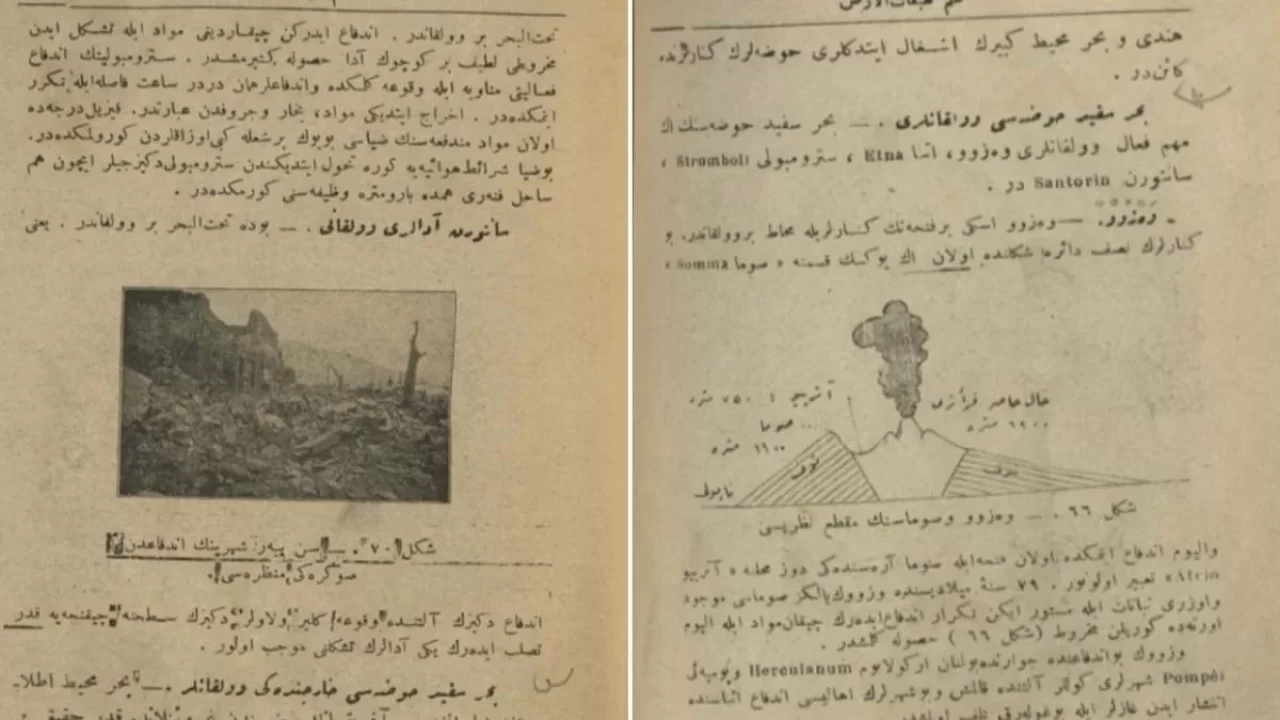 تحت‌البحر بر وولقاندر . اندفاع ایدرکن چیقاردیغی مواد ایله تشکل ایدن
مخروطی لطیف بر کوچوك آدا حصوله کتیرمشدر . سترومبولینك اندفاع
فعالیتی مناوبه ایله وقوعه کلمکده واندفاعلر همان دردر ساعت فاصله ایله تکرر
ایتمکده‌در . اخراج ایتدیکی مواد، بخار وجروفدن عبارتدر. قیزیل درجه‌ده
اولان مواد مندفعه‌سنك ضیاسی بویوك برشعله کبی اوزاقلردن کورولمکده‌در.
بوضیا شرائط هوائیه‌یه کوره تحول ایتدیکندن سترومبولی دکیزجیلر ایچون هم
ساحل فنه‌ری همده بارومتره وظیفه‌سنی کورمکده‌در .
سانتورن آدالری وولقانی . — بوده تحت‌البحر بر وولقاندر . یعنی
شکل ٧٠ . — سن پیه‌ر شهرینك اندفاعدن
صوکره‌کی منظره‌سی .
اندفاع دکیزك آلتنده وقوعه کلیر ولاولر دکیزك سطحنه چیقنجه‌یه قدر
تصلب ایده‌رك یکی آدالرك تشکلنی موجب اولور .
بحر سفید حوضه‌سی خارجنده‌کی وولقانلر . — بحر محیط اطلا-
علم طبقات‌الارض
هندی و بحر محیط کبیرك اشغال ایتدکلری حوضه‌لرك کنارلرنده
کائن‌در .
بحر سفید حوضه‌سی وولقانلری . — بحر سفید حوضه‌سنك اك
مهم فعال وولقانلری وه‌زوو، اتنا Etna ، سترومبولی Stromboli ،
سانتورن Santorin در .
وه‌زوو. — وه‌زوو اسکی برفتحه‌نك کنارلریله محاط بروولقاندر. بو
کنارلرك نصف دائره شکلنده اولان اك یوکسك قسمنه « صوما Somma »
حال حاضر
١٢٠٠ متره
٧٥٠ متره
صوما
١١٠٠ متره
توف
توف
ناپولی
شکل ٦٦ . — وه‌زوو وصوماسنك مقطع نظریسی
والیوم اندفاع ایتمکده اولان فتحه ایله صوما آره‌سنده‌کی دوز محله « آتریو
Atrio » تعبیر اولونور . ٧٩ سنهٔ میلادیسنده وزووك یالکز صوماسی موجود
واوزری نباتات ایله مستور ایکن تکرار اندفاع ایده‌رك چیقان مواد ایله الیوم
اورته‌ده کوریلن مخروط (شکل ٦٦ ) حصوله کلمشدر .
وزووك بواندفاعنده جوارنده بولنان ارکولانوم Herculanum وپومپه‌ئی
Pompéi شهرلری کوللر آلتنده قالمش وبو شهرلرك اهالیسی اندفاع اثناسنده
انتشار ایدن غازلر ایله